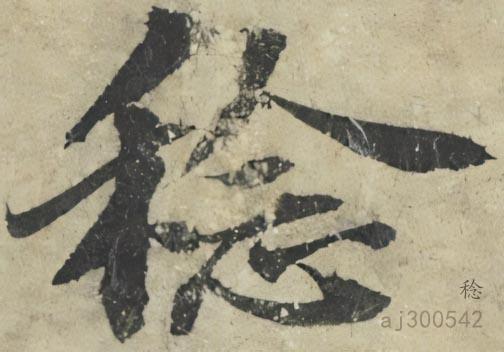 稔
稔
aj300542